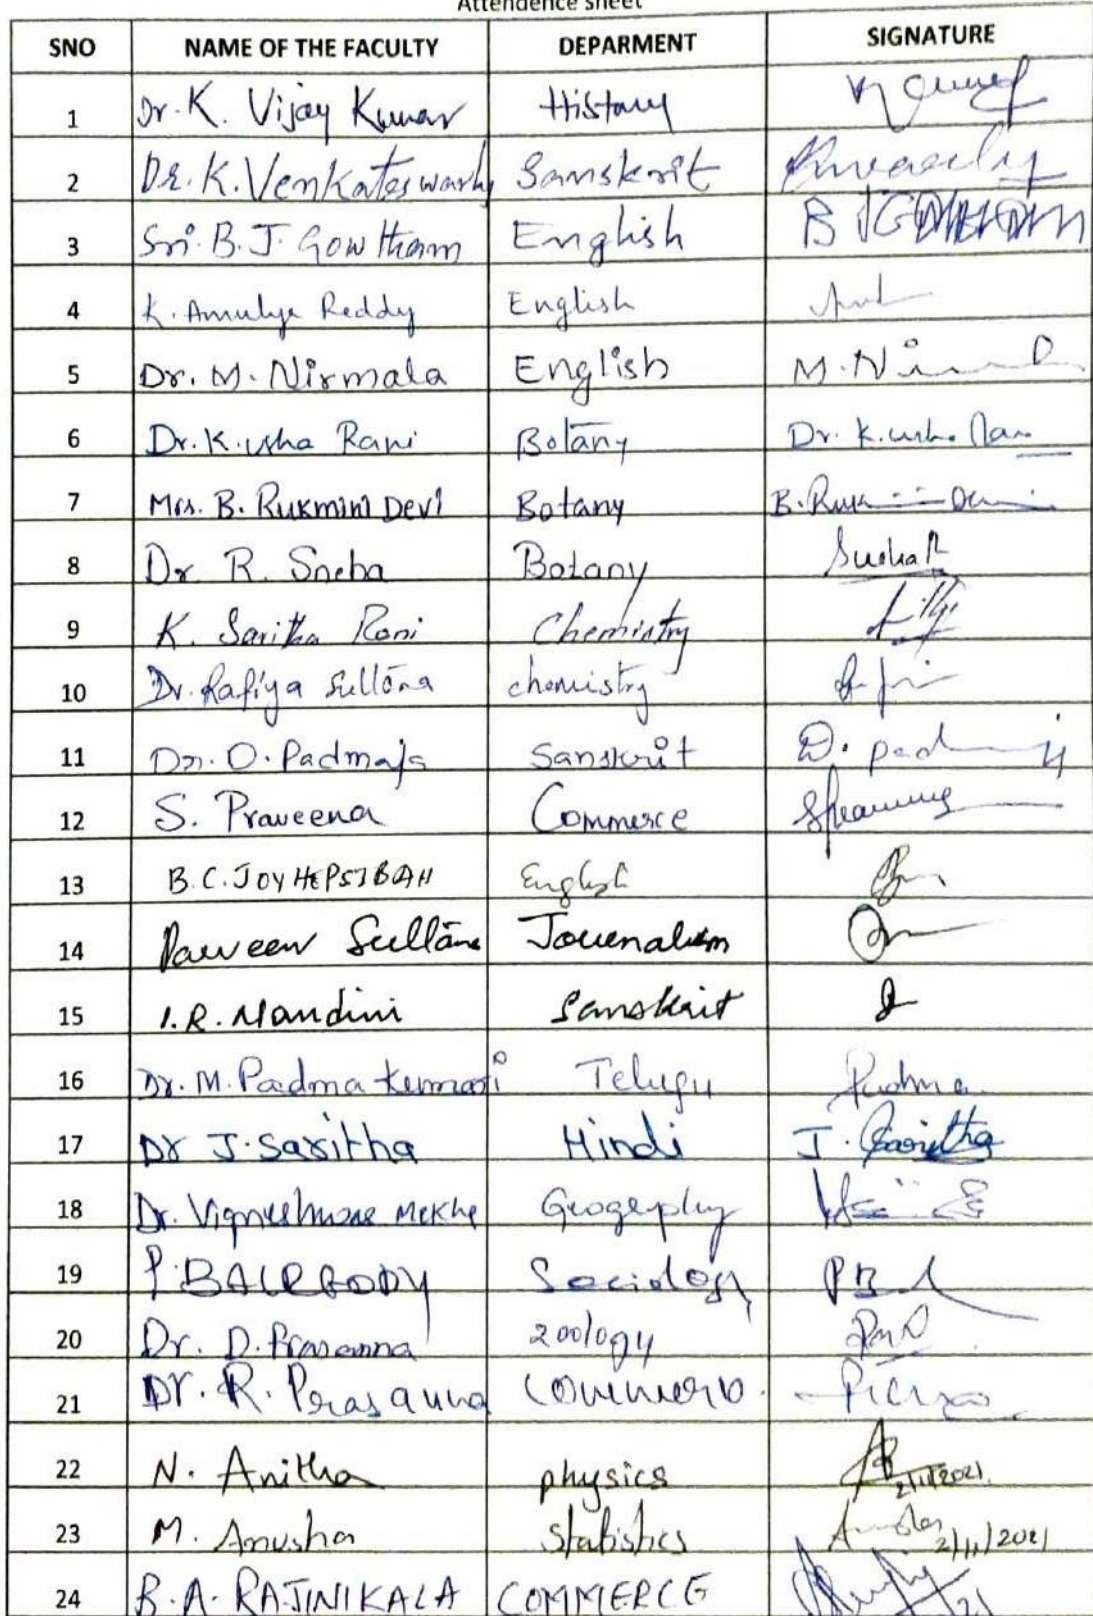 Attendence sheet
SNO NAME OF THE FACULTY DEPARMENT SIGNATURE
1 Dr. K. Vijay Kumar History
2 Dr. K. Venkateswarlu Sanskrit
3 Sri. B. J. Gowtham English B J GOWTHAM
4 K. Amulya Reddy English
5 Dr. M. Nirmala English M. Ni
6 Dr. K. Usha Rani Botany Dr. K. Usha Ran
7 Mrs. B. Rukmini Devi Botany B. Ruk
8 Dr R. Sneha Botany
9 K. Saritha Rani Chemistry
10 Dr. Rafiya Sultana chemistry
11 Dr. D. Padmaja Sanskrit D. pad
12 S. Praveena Commerce
13 B. C. JOY HEPSIBAH English
14 Parveen Sultana Journalism
15 I. R. Nandini Sanskrit
16 Dr. M. Padma Kumari Telugu Padma
17 Dr J. Saritha Hindi J. Saritha
18 Dr. Vigneshwar Mekhe Geography
19 P. BALREDDY Sociology
20 Dr. D. Prasanna zoology
21 Dr. R. Prasanna Commerce
22 N. Anitha physics 2/11/2021
23 M. Anusha Statistics 2/11/2021
24 B. A. RAJINIKALA COMMERCE